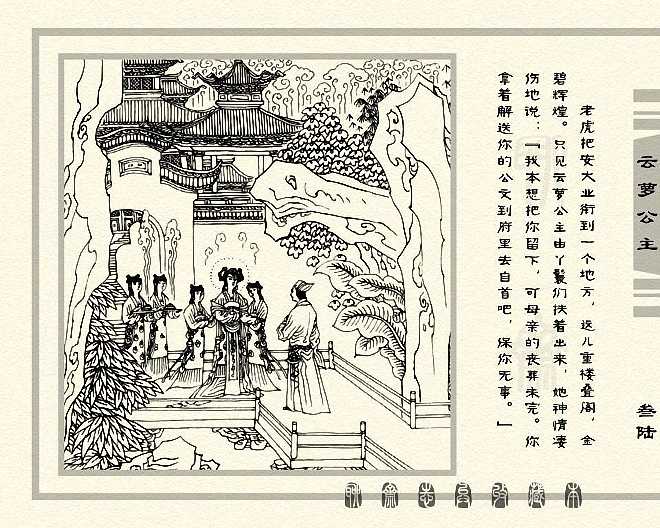 老虎把安大业衔到一个地方，这儿重楼叠阁，金
碧辉煌。只见云萝公主由丫鬟们扶着出来，她神情凄
伤地说：「我本想把你留下，可母亲的丧葬未完。你
拿着解送你的公文到府里去自首吧，保你无事。」
云萝公主
叁陆
聊斋志异收藏本